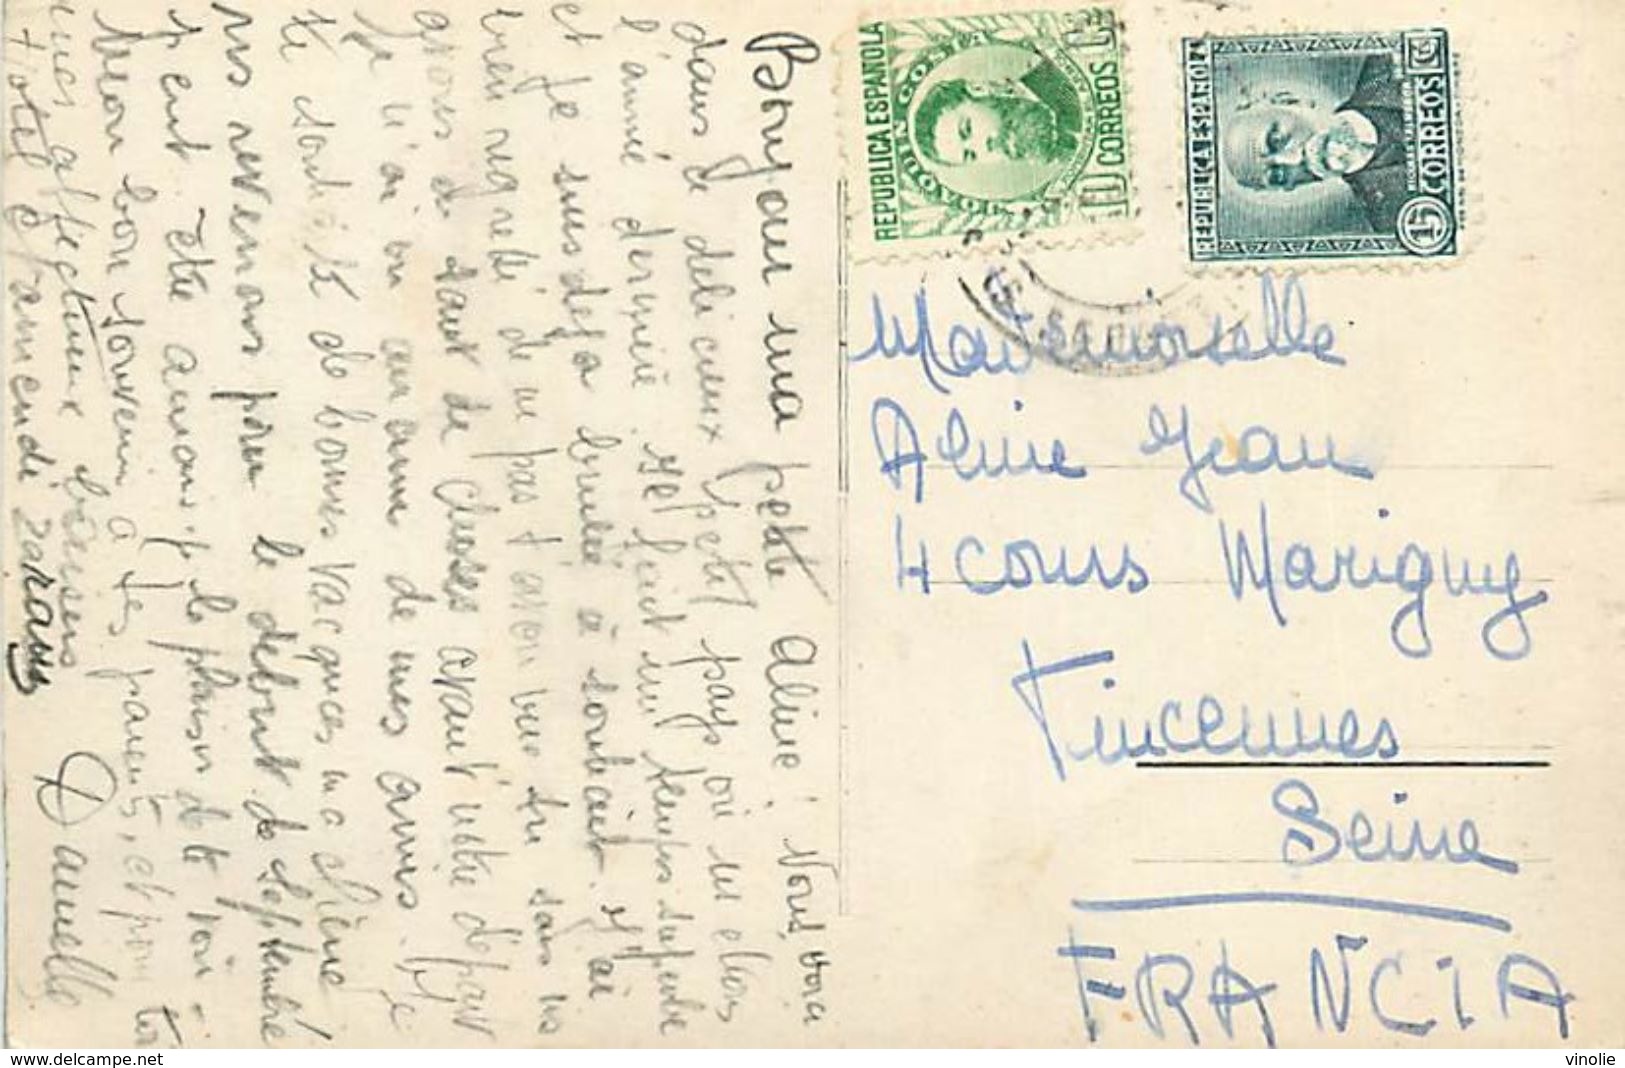 Bonjour ma petite Aline! Nous voici
dans ce délicieux petit pays où ns étions
l'année dernière Il fait un temps superbe
et je suis déjà brulée à souhait. J'ai
bien regretté de ne pas t'avoir vue tu sais ns
avions de tant de choses avant notre départ
Je n'ai vu aucune de mes amis. Je
te souhaite de bonnes vacances ma chérie
ns revenons pour le début de septembre
peut-être aurons-je le plaisir de te voir.
Mon bon souvenir à tes parents, et pour toi
mes affectueux baisers
Danielle
Hotel Zaraus
REPUBLICA ESPAÑOLA
JOAQUIN COSTA
10 CORREOS CTS
REPUBLICA ESPAÑOLA
15 CORREOS
Mademoiselle
Aline Jean
4 cours Marigny
Vincennes
Seine
FRANCIA
www.delcampe.net
vinolie